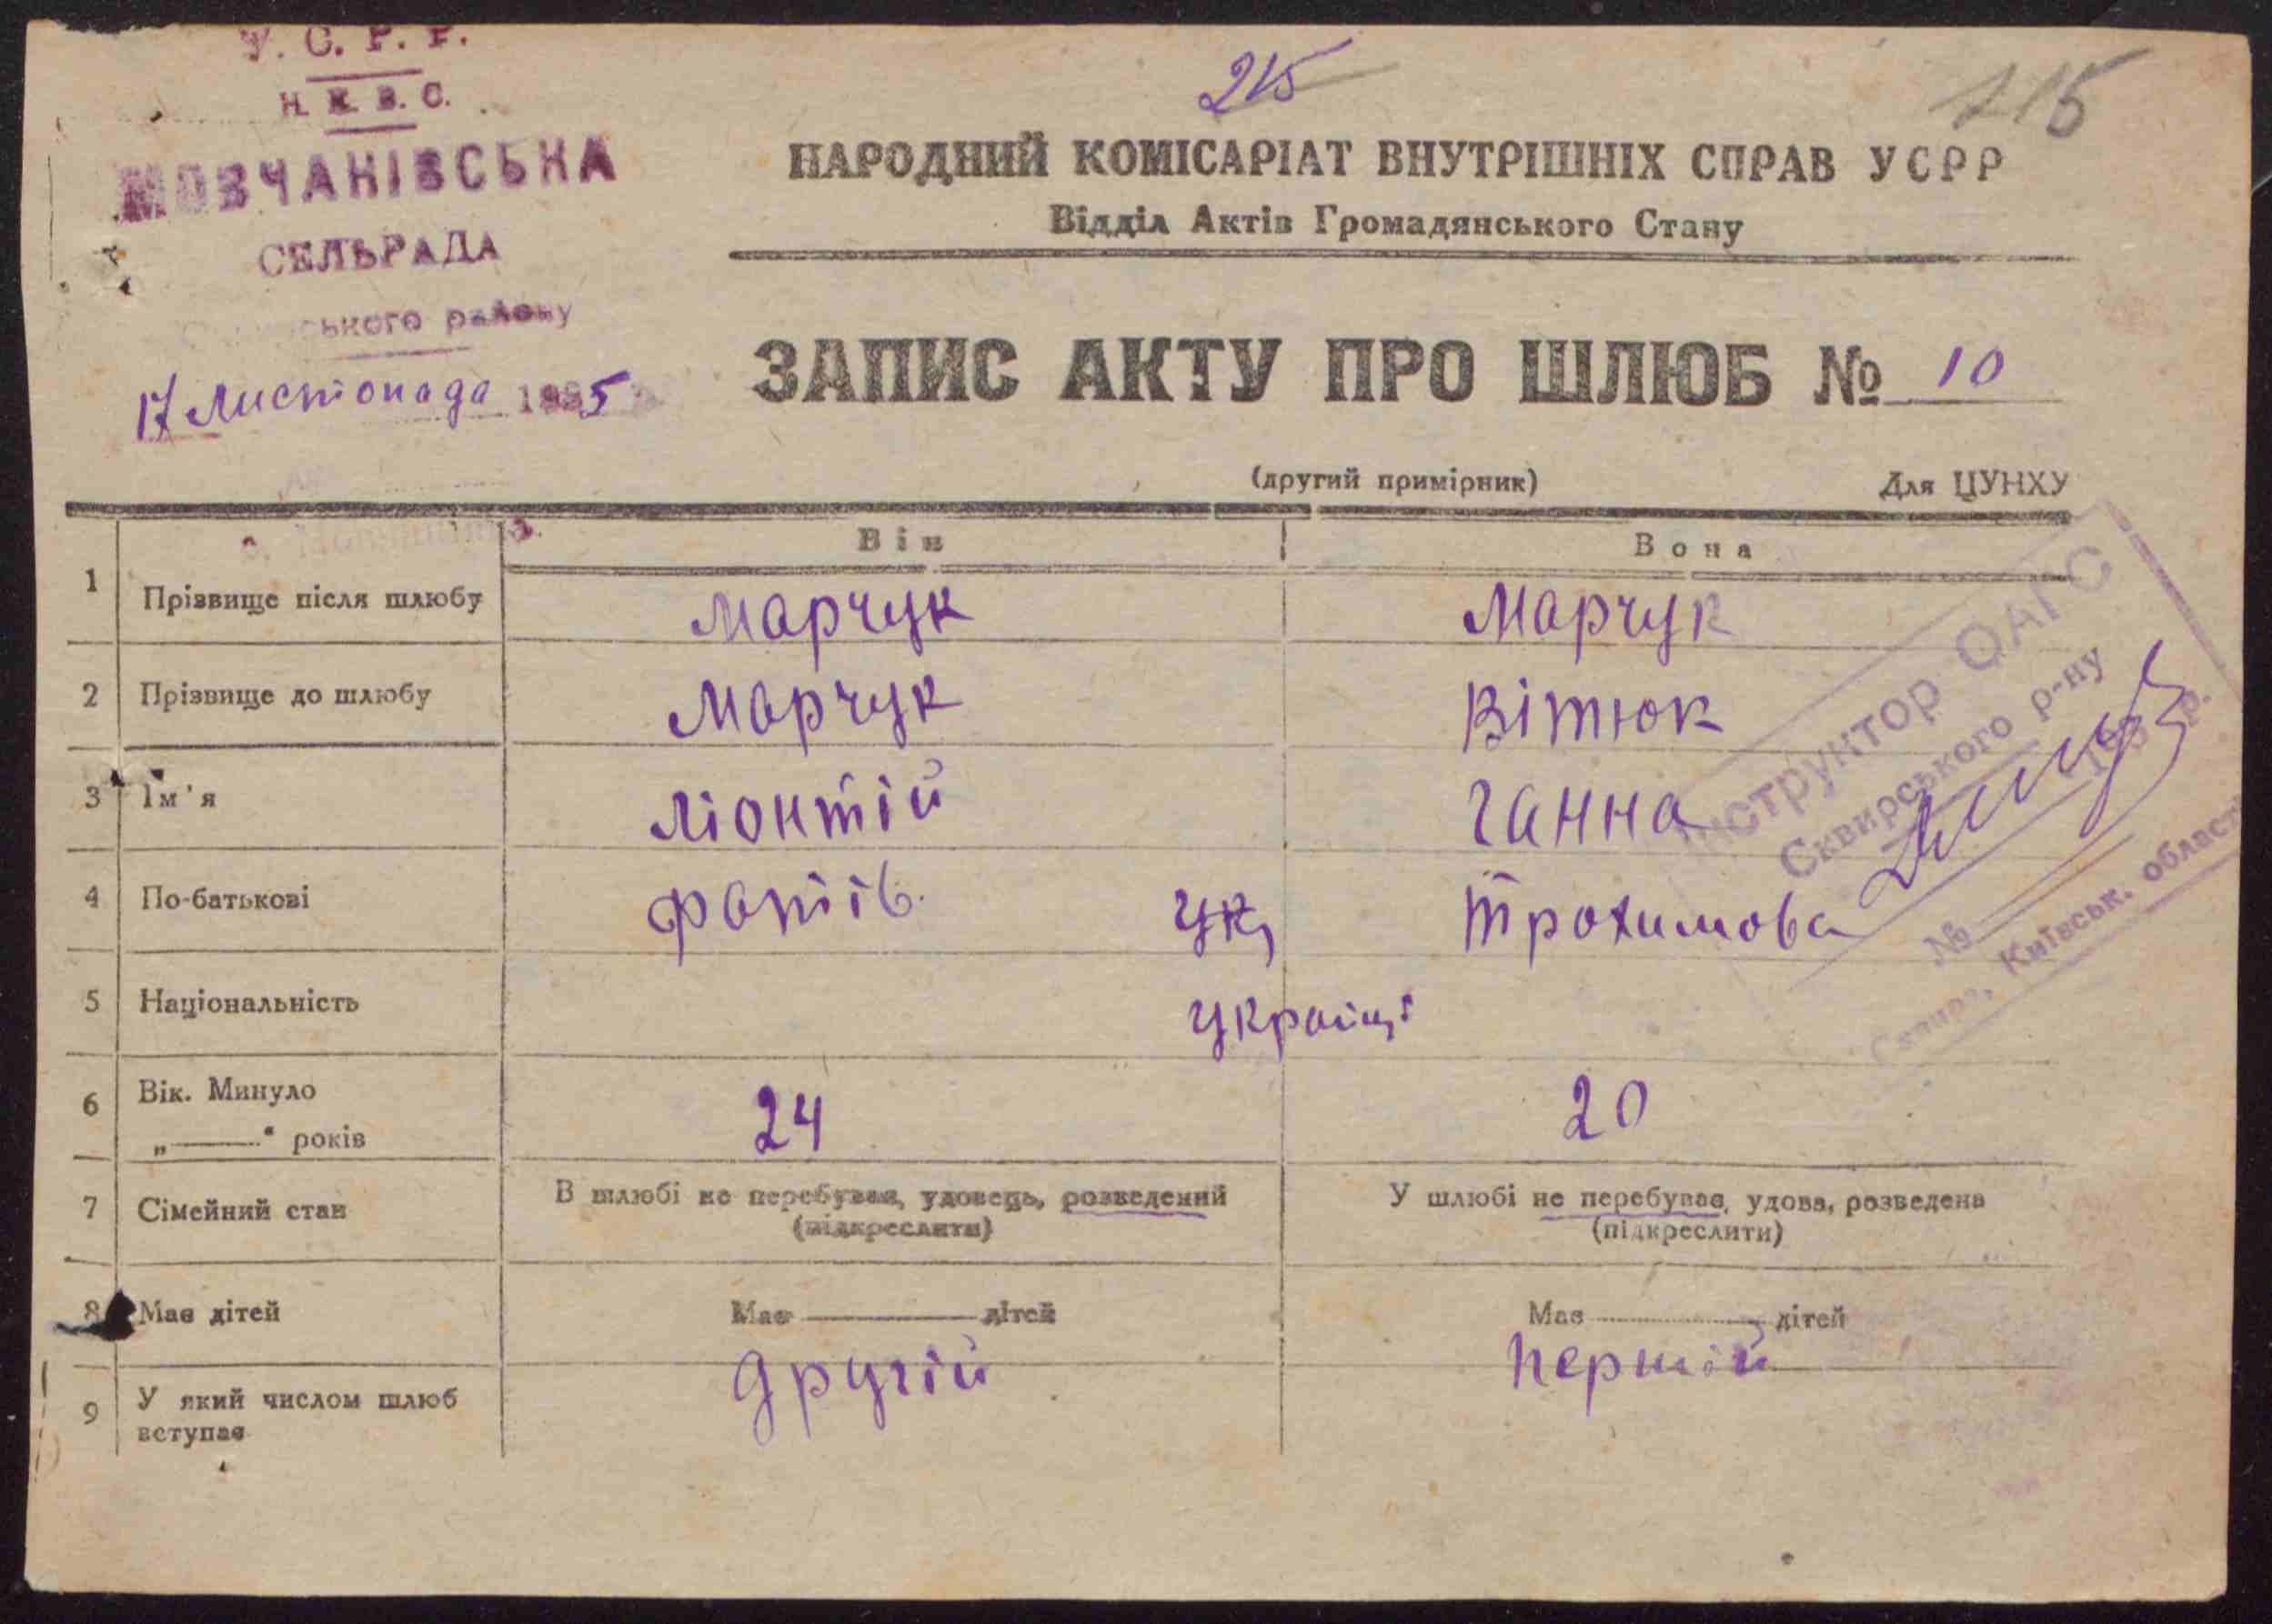 У. С. Р. Р.
Н. К. В. С.
МОВЧАНІВСЬКА
СЕЛЬРАДА
ського району
17 Листопада 1935
215
115
НАРОДНИЙ КОМІСАРІАТ ВНУТРІШНІХ СПРАВ УСРР
Відділ Актів Громадянського Стану
ЗАПИС АКТУ ПРО ШЛЮБ № 10
(другий примірник) Для ЦУНХУ
Він Вона
1 Прізвище після шлюбу Марчук Марчук
2 Прізвище до шлюбу Марчук Вітюк
3 Ім'я Ліонтій Ганна
4 По-батькові Фотіів. Ук, Трохимова
5 Національність Українці
6 Вік. Минуло
„———“ років 24 20
7 Сімейний стан В шлюбі не перебував, удовець, розведений У шлюбі не перебував, удова, розведена
(підкреслити) (підкреслити)
8 Має дітей Має ——— дітей Має ——— дітей
9 У який числом шлюб
вступає другій первій
Інструктор ОАГС
Сквирського р-ну
193 р.
№
Сквира, Київськ. област